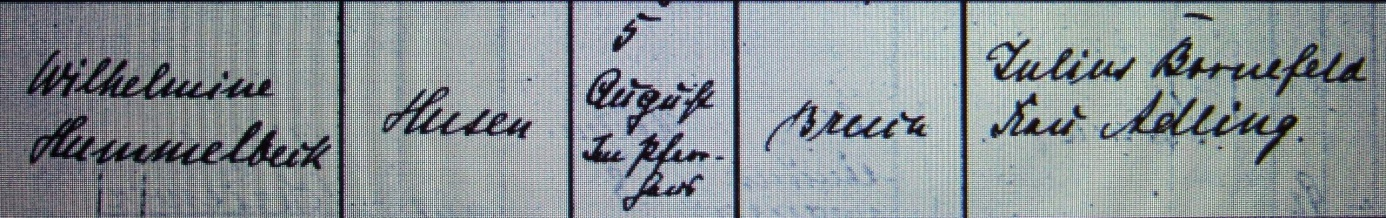 Wilhelmine
Hummelbeck
Husen
5
August
Im Pfarr-
haus
Julius Bornefeld
Frau Adling.